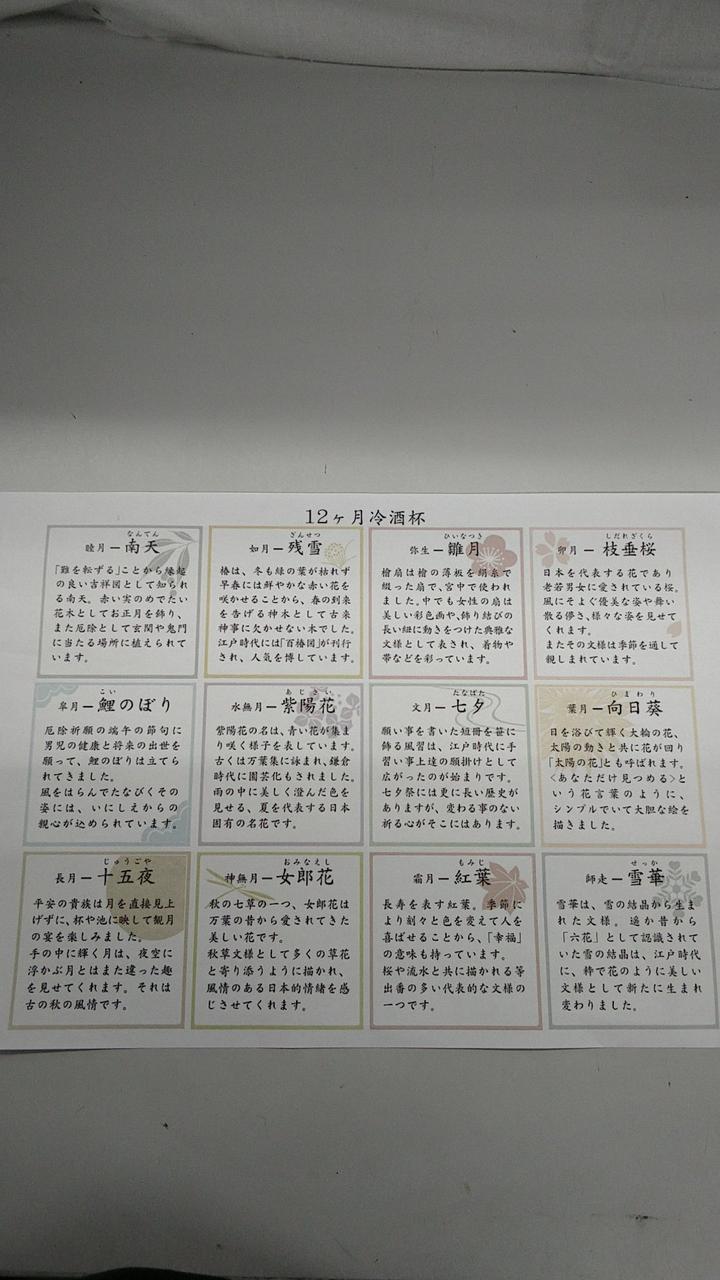 12ヶ月冷酒杯
なんてん
睦月ー南天
「難を転ずる」ことから縁起
の良い吉祥図として知られ
る南天。赤い実のめでたい
花木としてお正月を飾り、
また厄除として玄関や鬼門
に当たる場所に植えられて
います。
ざんせつ
如月ー残雪
椿は、冬も緑の葉が枯れず
早春には鮮やかな赤い花を
咲かせることから、春の到来
を告げる神木として古来
神事に欠かせない木でした。
江戸時代には「百椿図」が刊行
され、人気を博しています。
ひいなつき
弥生ー雛月
檜扇は檜の薄板を絹糸で
綴った扇で、宮中で使われ
ました。中でも女性の扇は
美しい彩色画や、飾り結びの
長い紐に動きをつけた典雅な
文様として表され、着物や
帯などを彩っています。
しだれざくら
卯月ー枝垂桜
日本を代表する花であり
老若男女に愛されている桜。
風にそよぐ優美な姿や舞い
散る儚さ、様々な姿を見せて
くれます。
またその文様は季節を通して
親しまれています。
こい
皐月ー鯉のぼり
厄除祈願の端午の節句に
男児の健康と将来の出世を
願って、鯉のぼりは立てら
れてきました。
風をはらんでたなびくその
姿には、いにしえからの
親心が込められています。
あじさい
水無月ー紫陽花
紫陽花の名は、青い花が集ま
り咲く様子を表しています。
古くは万葉集に詠まれ、鎌倉
時代に園芸化もされました。
雨の中に美しく澄んだ色を
見せる、夏を代表する日本
固有の名花です。
たなばた
文月ー七夕
願い事を書いた短冊を笹に
飾る風習は、江戸時代に手
習い事上達の願掛けとして
広がったのが始まりです。
七夕祭には更に長い歴史が
ありますが、変わる事のない
祈る心がそこにはあります。
ひまわり
葉月ー向日葵
日を浴びて輝く大輪の花、
太陽の動きと共に花が回り
「太陽の花」とも呼ばれます。
<あなただけ見つめる>と
いう花言葉のように、
シンプルでいて大胆な絵を
描きました。
じゅうごや
長月ー十五夜
平安の貴族は月を直接見上
げずに、杯や池に映して観月
の宴を楽しみました。
手の中に輝く月は、夜空に
浮かぶ月とはまた違った趣
を見せてくれます。それは
古の秋の風情です。
おみなえし
神無月ー女郎花
秋の七草の一つ、女郎花は
万葉の昔から愛されてきた
美しい花です。
秋草文様として多くの草花
と寄り添うように描かれ、
風情のある日本的情緒を感
じさせてくれます。
もみじ
霜月ー紅葉
長寿を表す紅葉。季節に
より刻々と色を変えて人を
喜ばせることから、「幸福」
の意味も持っています。
桜や流水と共に描かれる等
出番の多い代表的な文様の
一つです。
せっか
師走ー雪華
雪華は、雪の結晶から生ま
れた文様。遥か昔から
「六花」として認識されて
いた雪の結晶は、江戸時代
に、粋で花のように美しい
文様として新たに生まれ
変わりました。